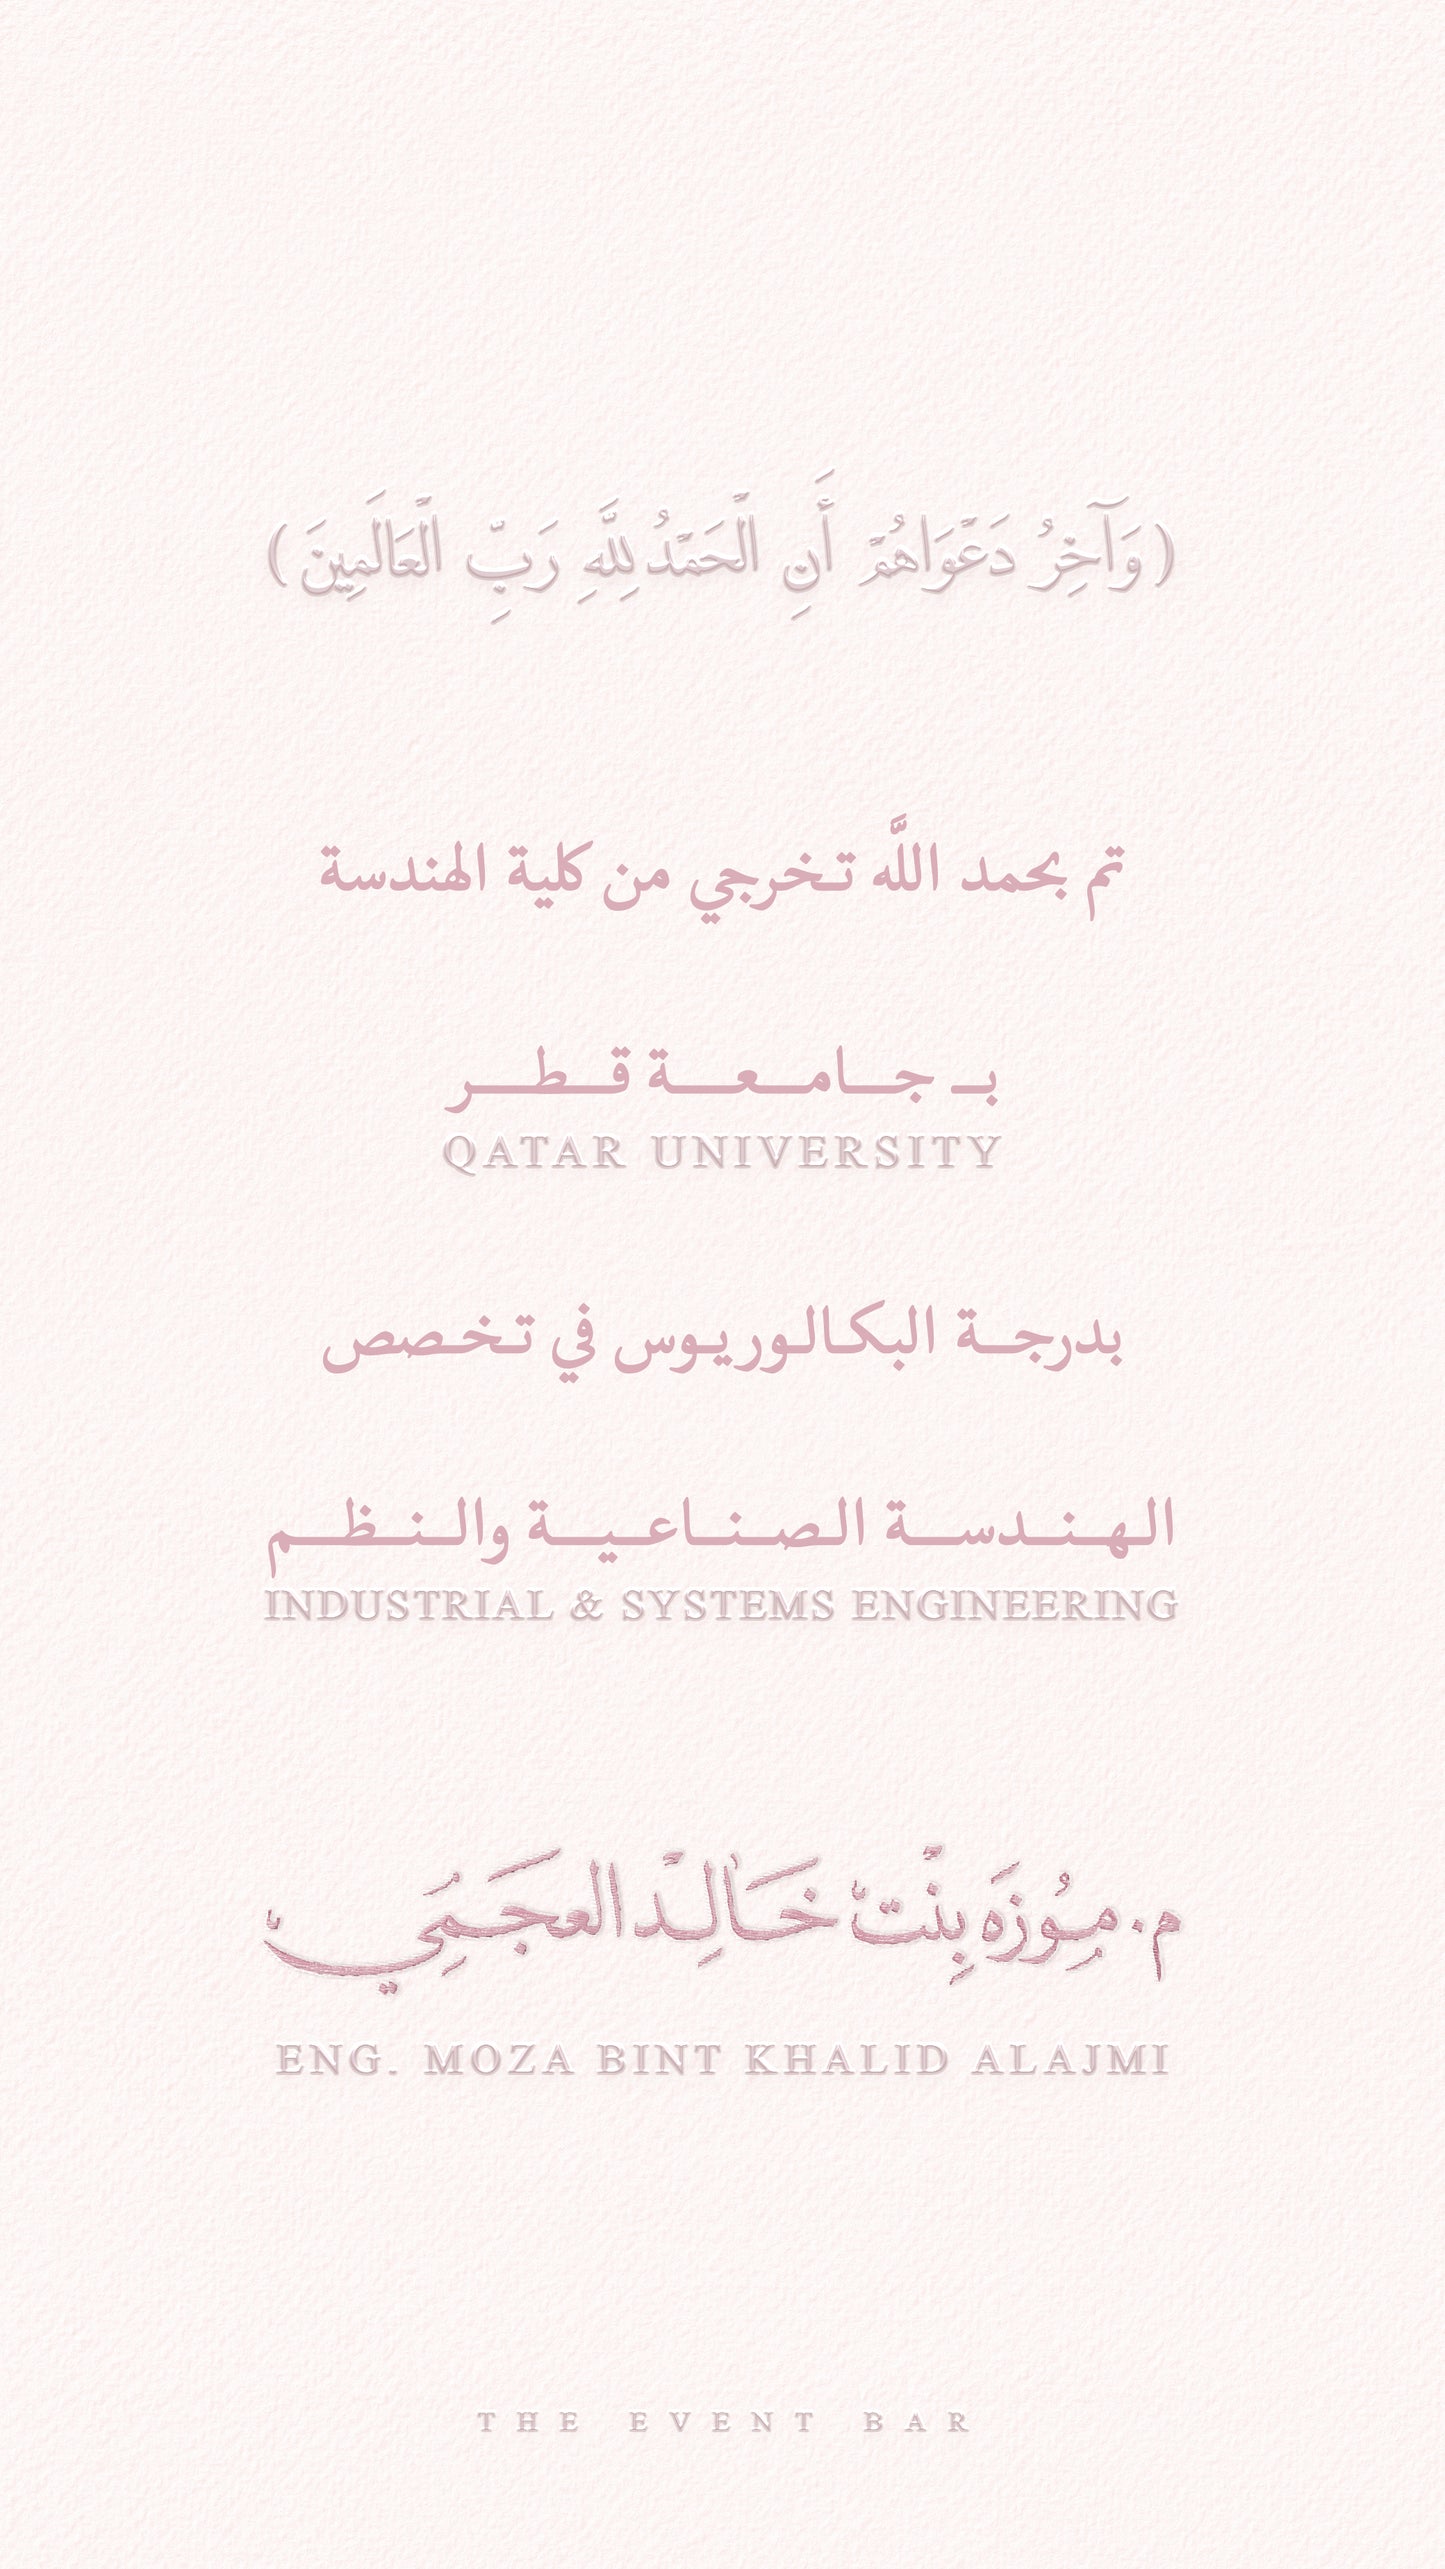 (وَآخِرُ دَعْوَاهُمْ أَنِ الْحَمْدُ لِلَّهِ رَبِّ الْعَالَمِينَ)
تم بحمد اللَّه تخرجي من كلية الهندسة
بـ جـامـعـة قـطـر
QATAR UNIVERSITY
بدرجـة البكالوريوس في تخصص
الهندسة الصناعية والنظم
INDUSTRIAL & SYSTEMS ENGINEERING
م. مُوزَه بِنْت خَالِد العجَمِي
ENG. MOZA BINT KHALID ALAJMI
THE EVENT BAR